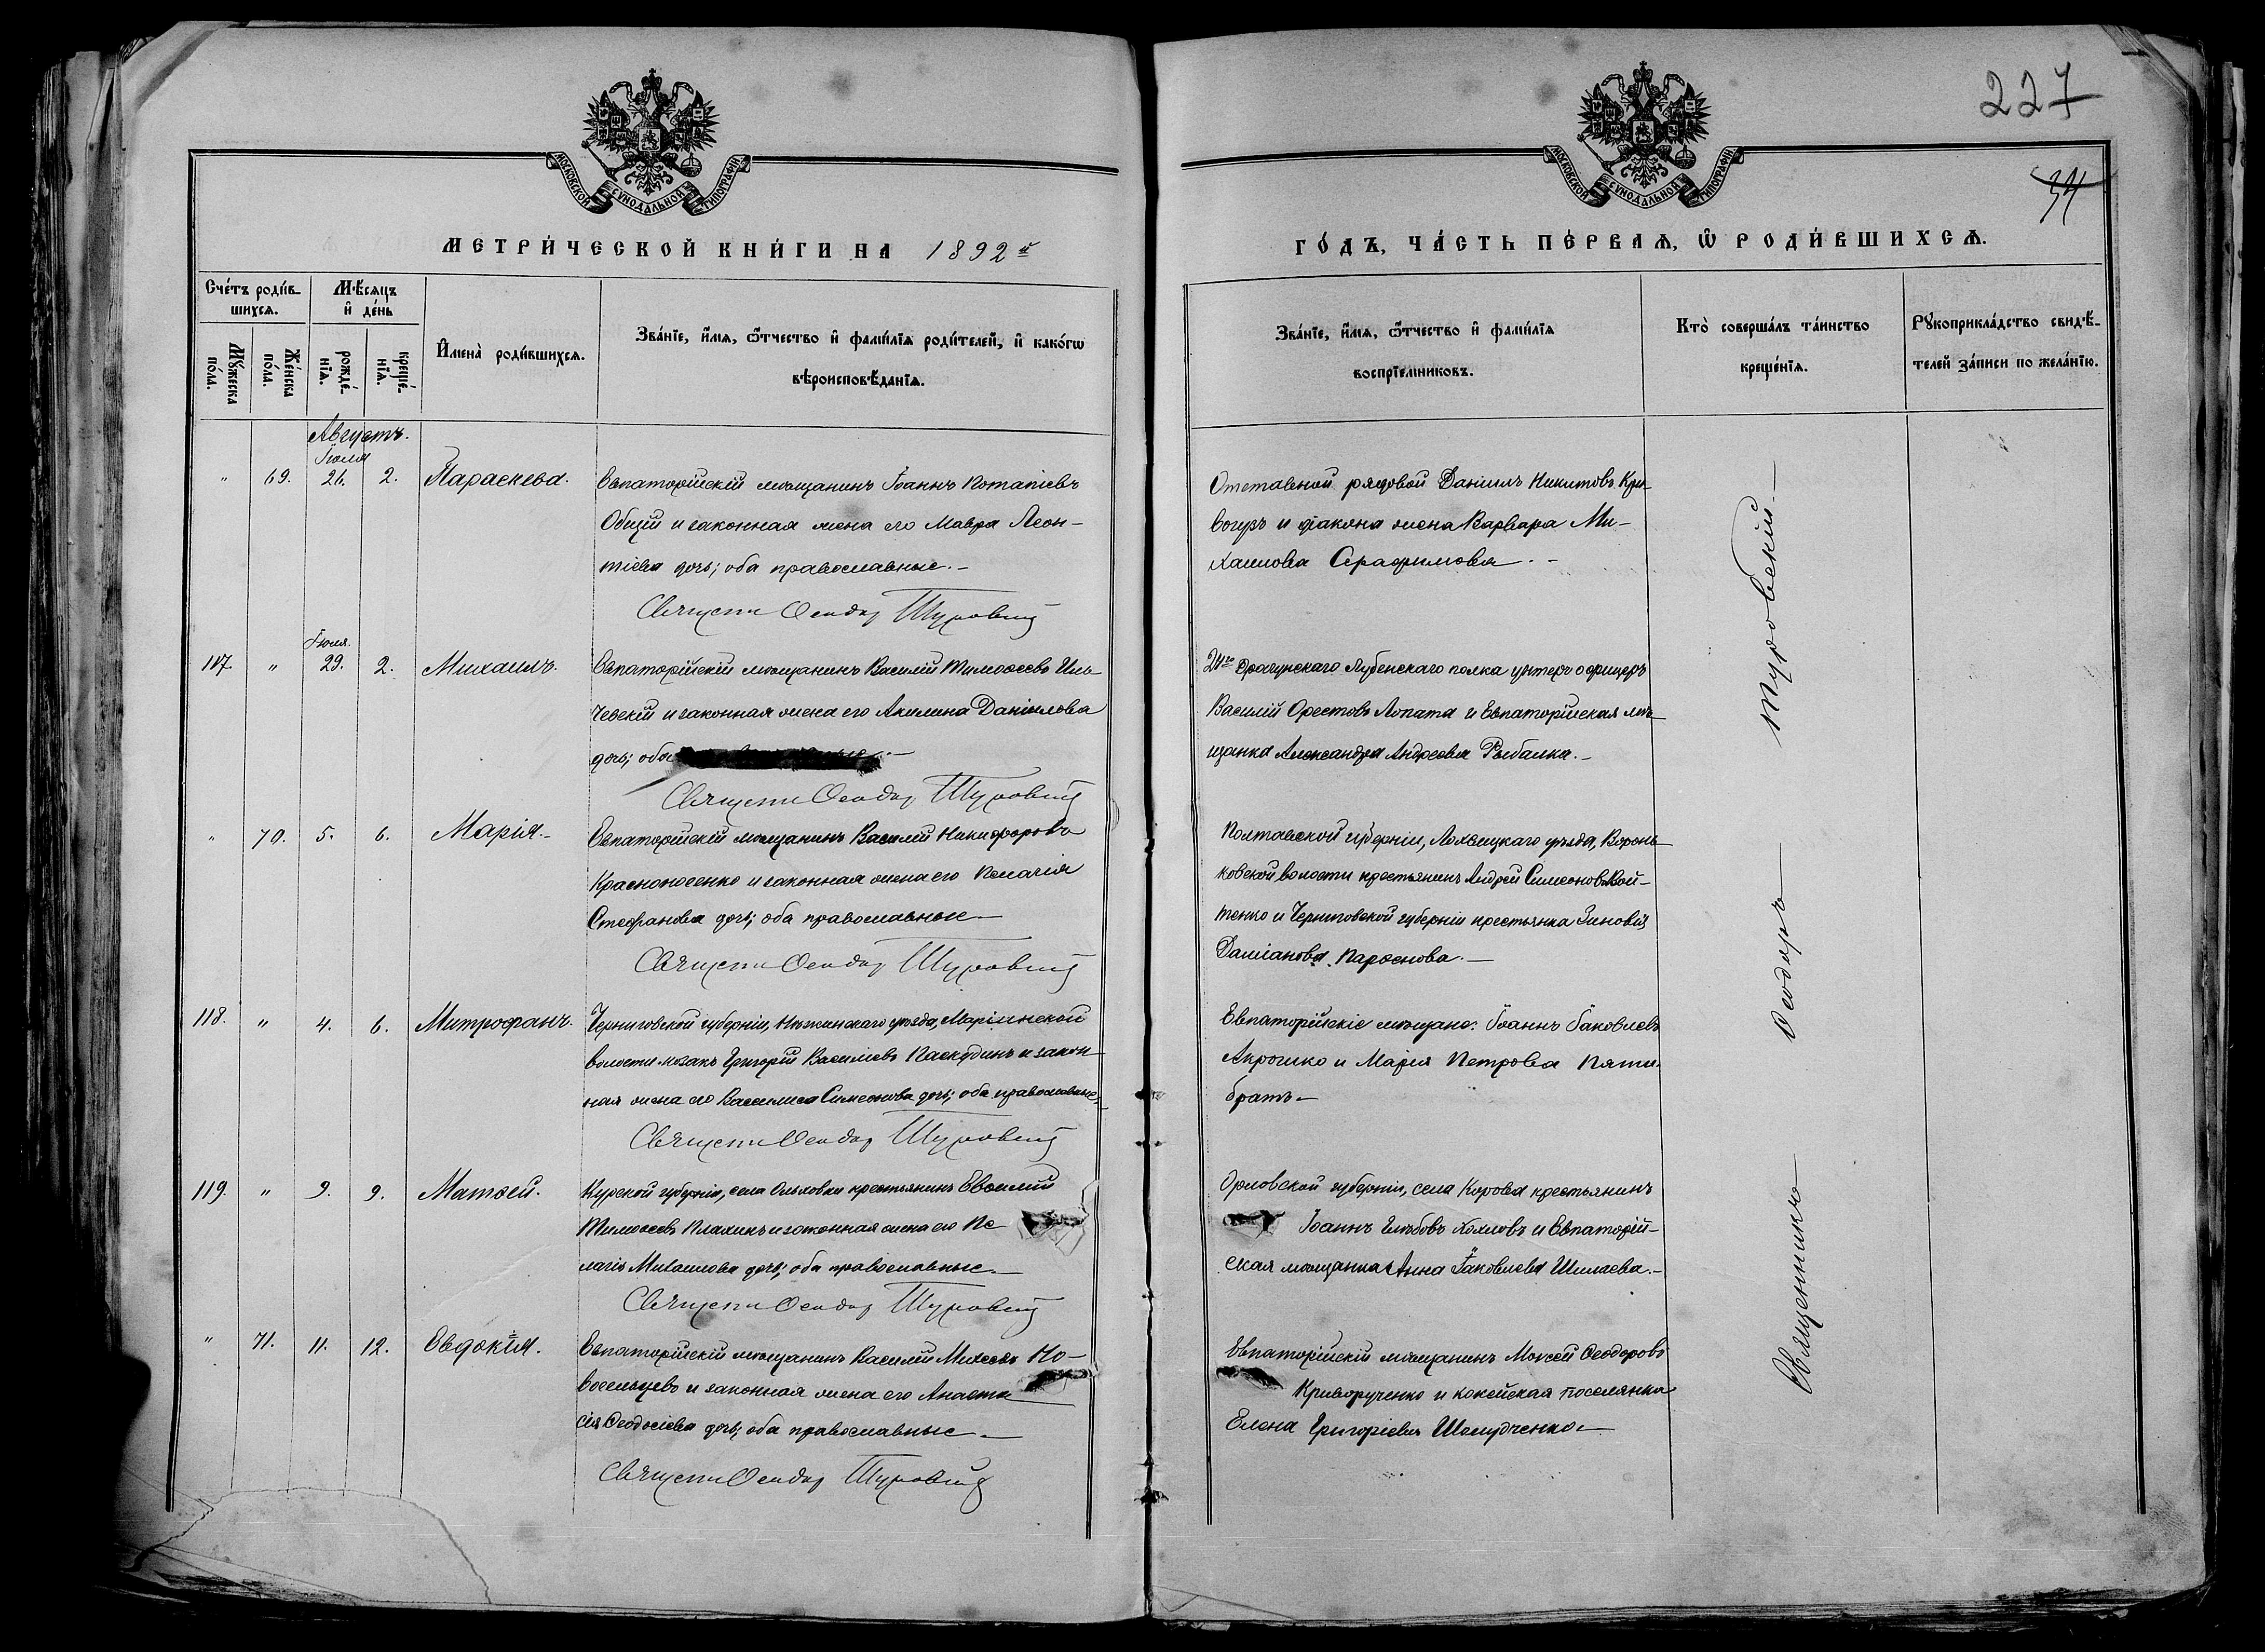 227
34
МОСКОВСКОЙ СУНОДАЛЬНОЙ ТИПОГРАФІИ
МОСКОВСКОЙ СУНОДАЛЬНОЙ ТИПОГРАФІИ
МЕТРИ́ЧЕСКОЙ КНИ́ГИ НА 1892й
ГО́ДЪ, ЧА́СТЬ ПЕ́РВАѦ, Ѡ РОДИ́ВШИХСѦ.
Сче́тъ роди́в-
шихсѧ.
Мꙋ́жеска по́ла.
Же́нска по́ла.
Мѣ́сѧцъ
и҆ де́нь
рожде́-нїѧ.
креще́-нїѧ.
И҆мена̀ роди́вшихсѧ.
Зва́нїе, и҆́мѧ, ѻ҆́тчество и҆ фами́лїѧ роди́телей, и҆ како́гѡ
вѣроисповѣ́данїѧ.
Зва́нїе, и҆́мѧ, ѻ҆́тчество и҆ фами́лїѧ
воспрїе́мниковъ.
Кто̀ соверша́лъ та́инство
креще́нїѧ.
Рꙋкоприкла́дство свидѣ́-
телей за́писи по жела́нїю.
Августъ.
Іюля
" 69. 26. 2. Параскева.
Евпаторійскій мѣщанинъ Іоаннъ Потапіевъ
Общій и законная жена его Мавра Леон-
тіева дочь; оба православные. -
Священ Ѳеодор Туровскій
Отставной рядовой Даніилъ Никитовъ Кри-
вогузъ и діакона жена Варвара Ми-
хаилова Серафимова. -
Іюля.
117. " 29. 2. Михаилъ.
Евпаторійскій мѣщанинъ Василій Тимоѳеевъ Иль-
чевскій и законная жена его Акилина Даніилова
дочь; оба
Священ Ѳеодор Туровскій
24го Драгунскаго Лубенскаго полка унтеръ офицеръ
Василій Орестовъ Лопата и Евпаторійская мѣ-
щанка Александра Андреева Рыбалка. -
" 70. 5. 6. Марія. -
Евпаторійскій мѣщанинъ Василій Никифоровъ
Красноносенко и законная жена его Пелагія
Стефанова дочь; оба православные -
Священ Ѳеодор Туровскій
Полтавской губерніи, Лохвицкаго уѣзда, Вороньь-
ковской волости крестьянинъ Андрей Симеоновъ Вой-
тенко и Черниговской губерніи крестьянка Зиновія
Даміанова -
118. " 4. 6. Митрофанъ.
Черниговской губерніи, Нѣжинскаго уѣзда, Маріинской
волости козакъ Григорій Василіевъ Паскудинъ и закон-
ная жена его Василиса Симеонова дочь; оба православные. -
Священ Ѳеодор Туровскій
Евпаторійскіе мѣщане: Іоаннъ Іаковлевъ
и Марія Петрова Пяти-
братъ -
119. " 9. 9. Матѳей.
Курской губерніи, села Ольховки крестьянинъ Евсилій
Тимоѳеевъ и законная жена его Пе
лагія Михаилова дочь; оба православные. -
Священ Ѳеодор Туровскій
Орловской губерніи, села Корова крестьянинъ
Іоаннъ Глѣбовъ Холмовъ и Евпаторій-
ская мѣщанка Анна Іаковлева Шилаева. -
" 71. 11. 12. Евдокія.
Евпаторійскій мѣщанинъ Василій Моисеевъ Но-
восельцевъ и законная жена его Анаста
сія Ѳеодосіева дочь; оба православные -
Священ Ѳеодор Туровскій
Евпаторійскій мѣщанинъ Моисей Ѳеодоровъ
Криворученко и поселянка
Елена Григоріева -
Священникъ Ѳеодоръ Туровскій -